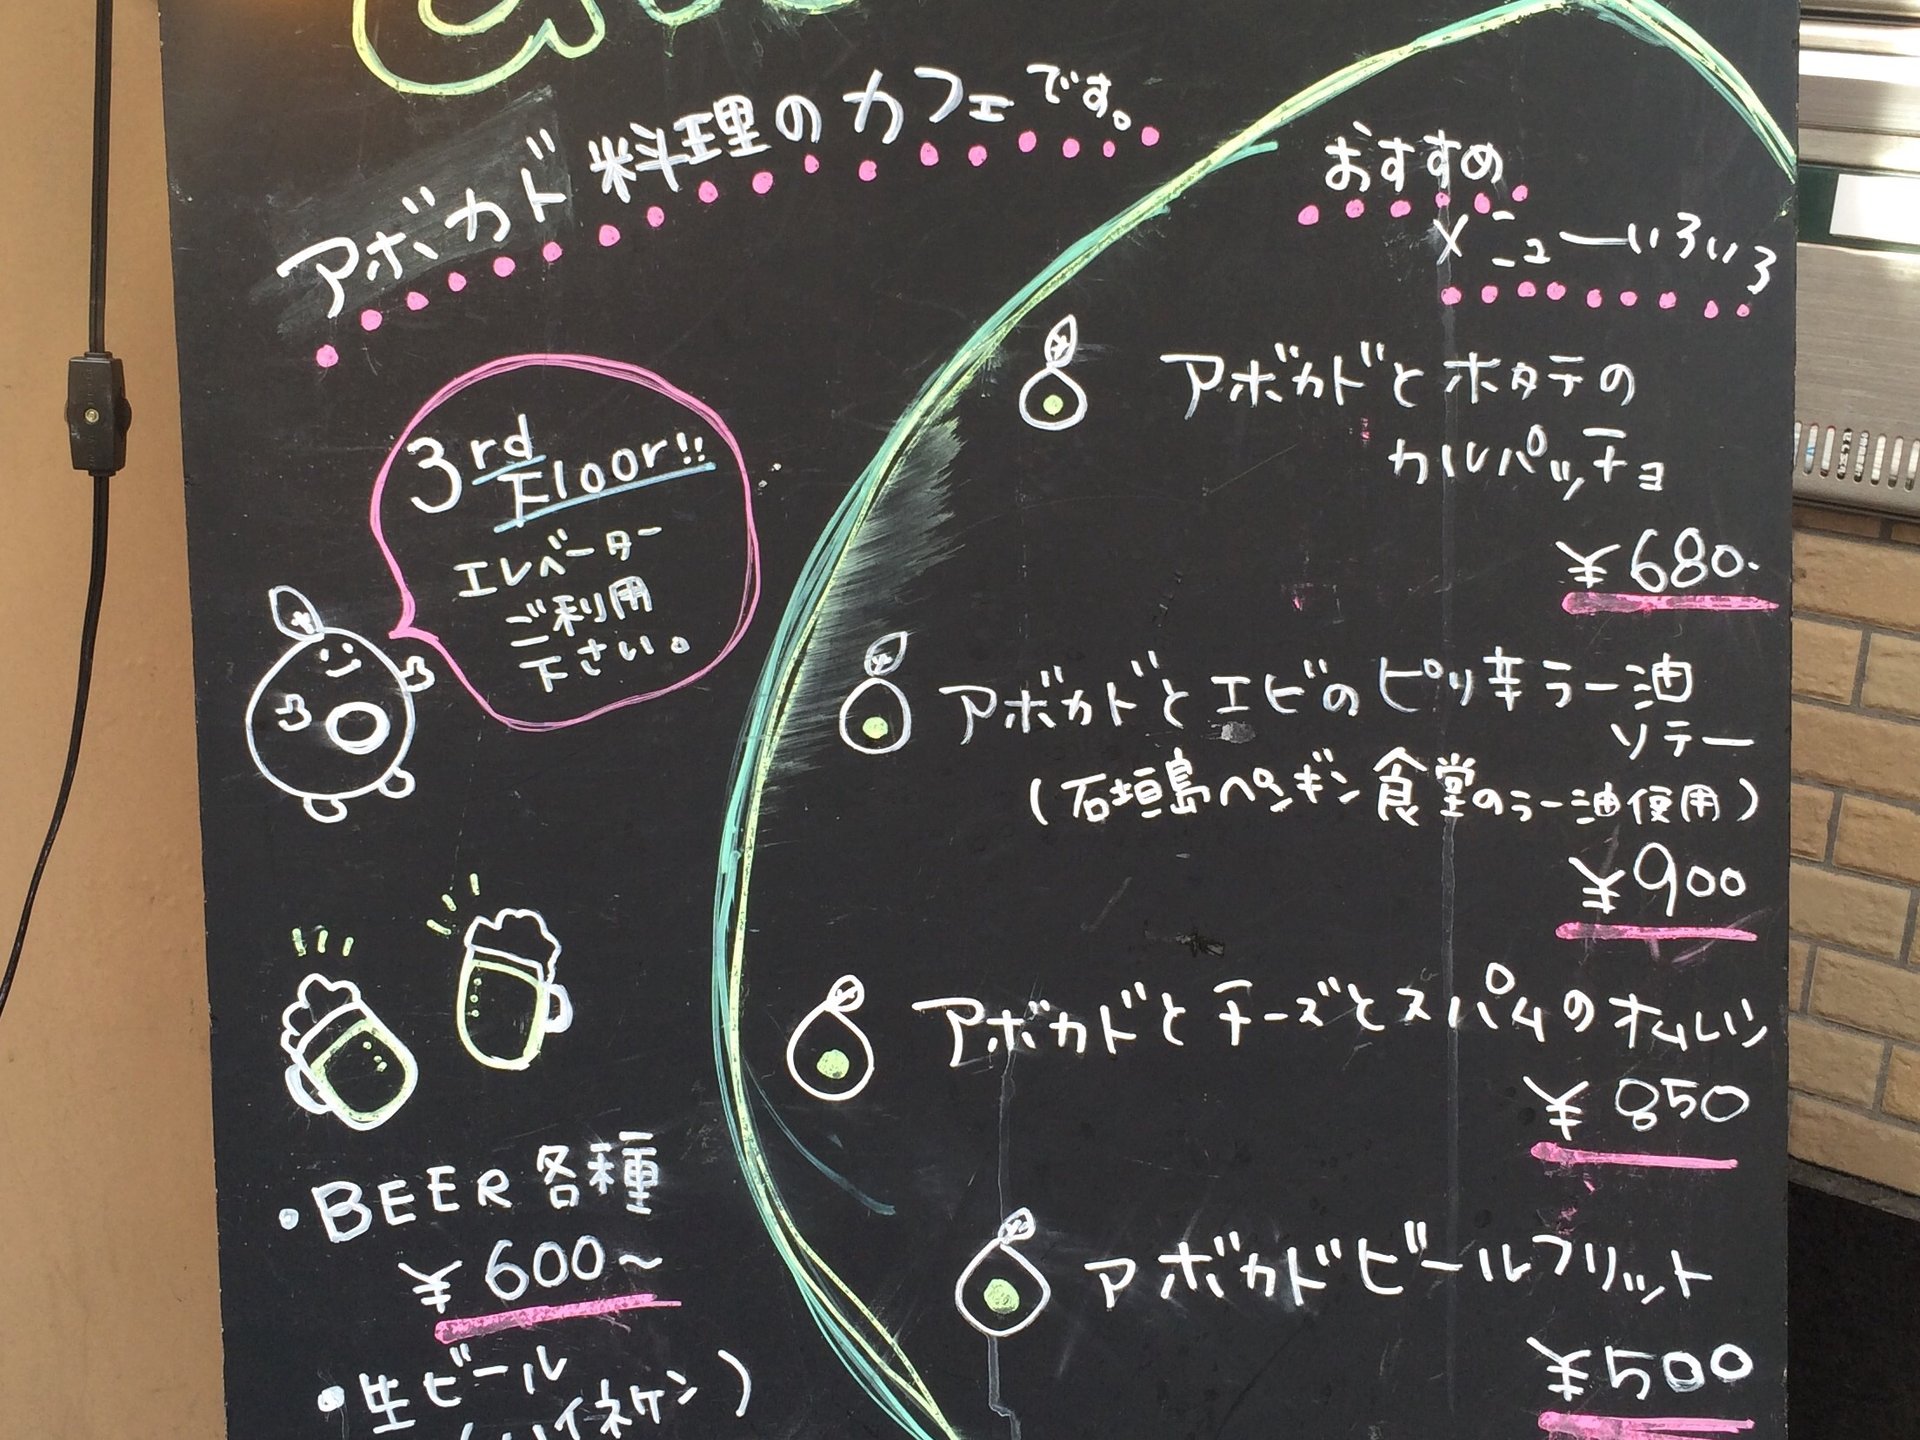 アボカド料理のカフェです。
3rd
Floor!!
エレベーター
ご利用
下さい。
・BEER各種
¥600〜
・生ビール
ハイネケン)
おすすめ
メニューいろいろ
アボカドとホタテの
カルパッチョ
¥680.
アボカドとエビのピリ辛ラー油
ソテー
(石垣島ペンギン食堂のラー油使用)
¥900
アボカドとチーズとスパムのオムレツ
¥850
アボカドビールフリット
¥500